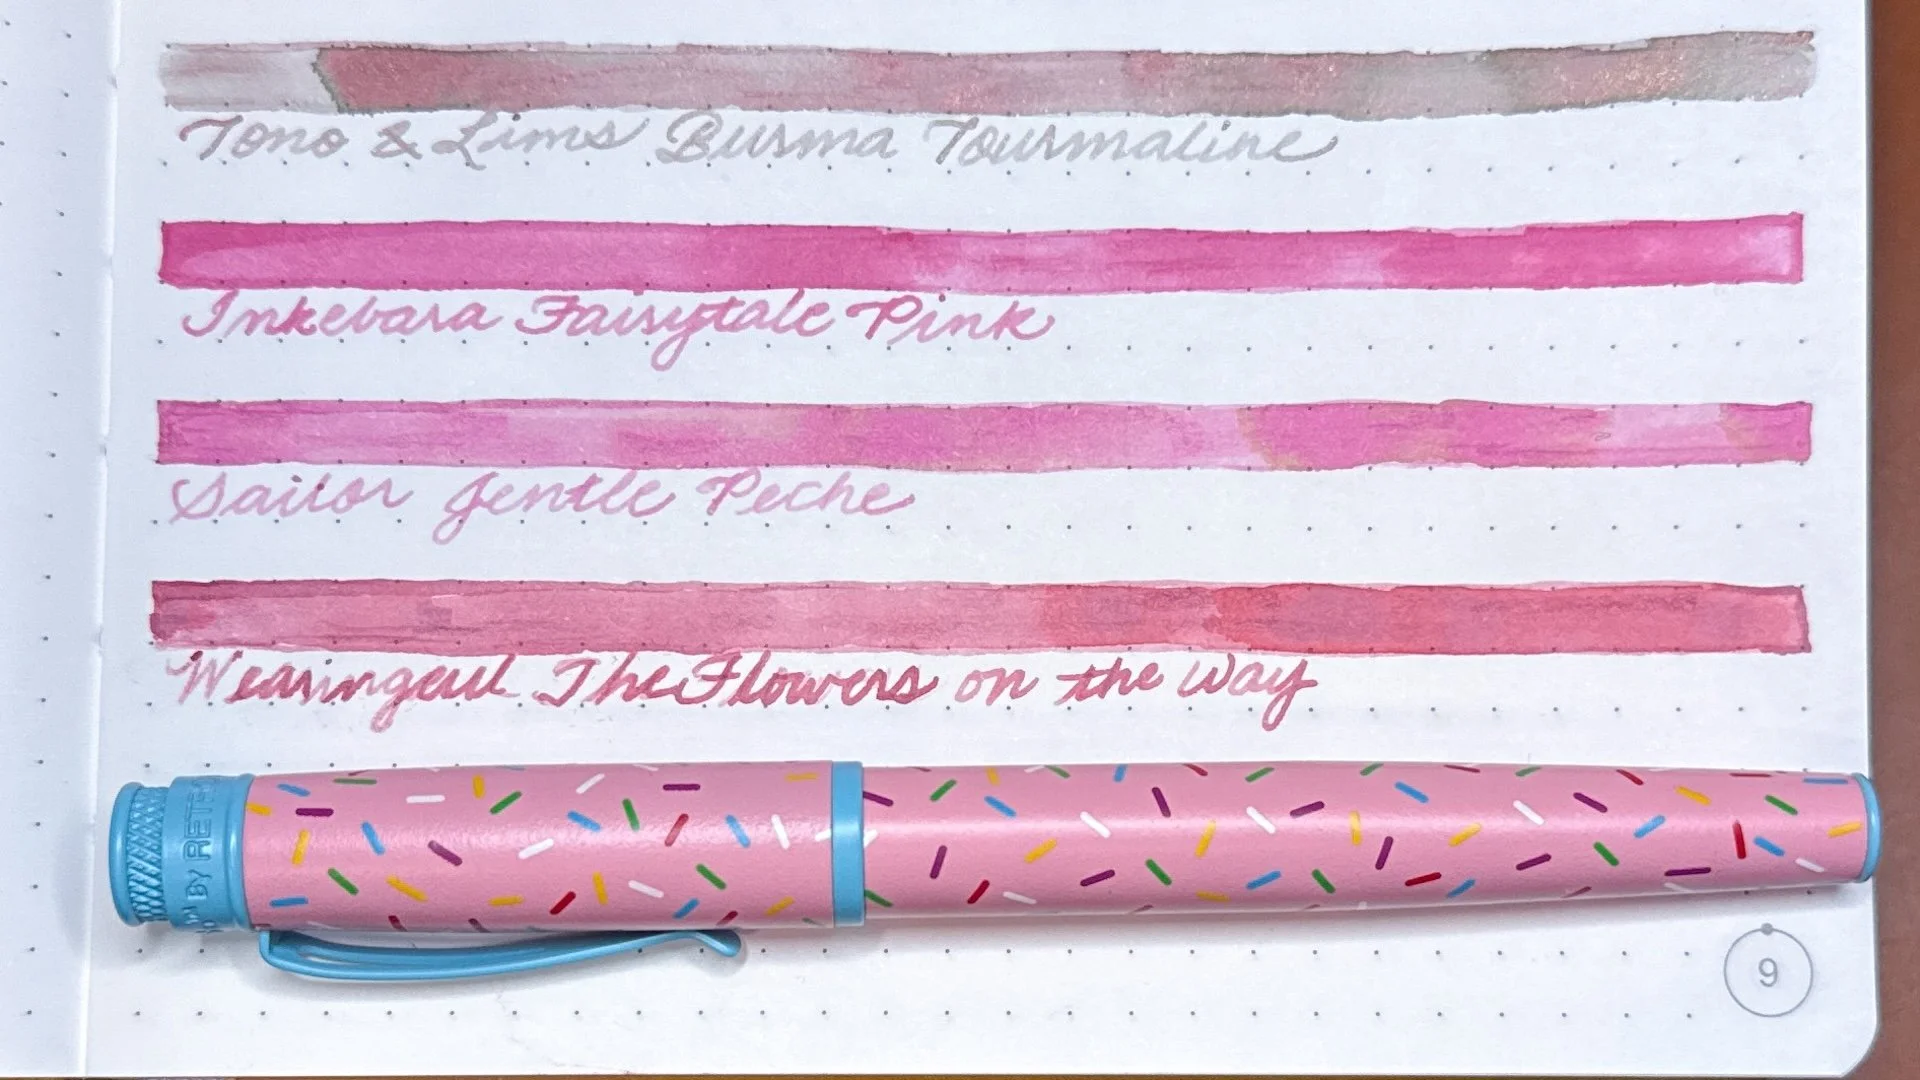 Tono & Lims Burma Tourmaline
Inkebara Fairytale Pink
Sailor Gentle Peche
Wearingeul The Flowers on the way
BY RETRO
9